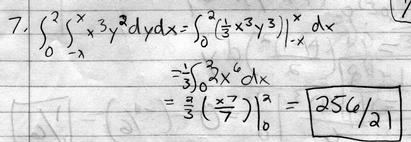 7. ∫₀² ∫₋ₓˣ x³y²dydx = ∫₀² (1/3 x³y³)|₋ₓˣ dx
= 1/3 ∫₀² 2x⁶ dx
= 2/3 (x⁷/7)|₀² = 256/21